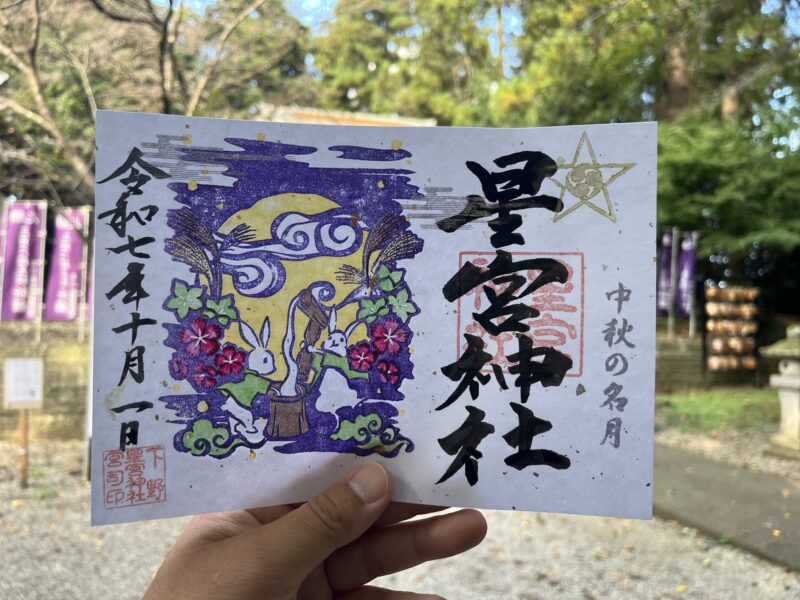 星宮神社
中秋の名月
令和七年十月一日
下野
星宮神社
宮司印